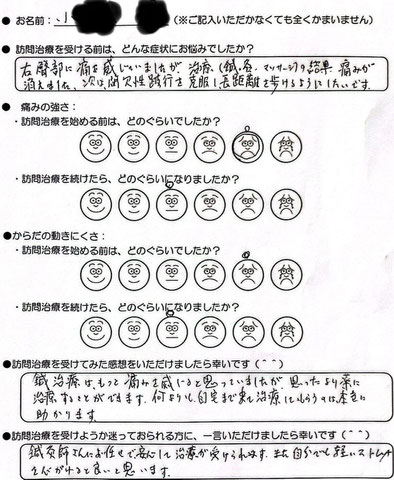 ● お名前：
（※ご記入いただかなくても全くかまいません）
● 訪問治療を受ける前は、どんな症状にお悩みでしたか？
右臀部に痛を感じていましたが 治療（鍼、灸、マッサージ）の結果 痛みが
消えました、次は間欠性跛行を克服し長距離を歩けるようにしたいです。
● 痛みの強さ：
・訪問治療を始める前は、どのぐらいでしたか？
・訪問治療を続けたら、どのぐらいになりましたか？
●からだの動きにくさ：
・訪問治療を始める前は、どのぐらいでしたか？
・訪問治療を続けたら、どのぐらいになりましたか？
●訪問治療を受けてみた感想をいただけましたら幸いです（＾＾）
鍼治療は、もっと痛みを感じると思っていましたが、思ったより楽に
治療することができます。何よりも自宅まで来て治療してもらうのは本当に
助かります。
●訪問治療を受けようか迷っておられる方に、一言いただけましたら幸いです（＾＾）
鍼灸師さんにお任せで安心して治療が受けられます。また自分でも軽いストレッチ
をと良いと思います。